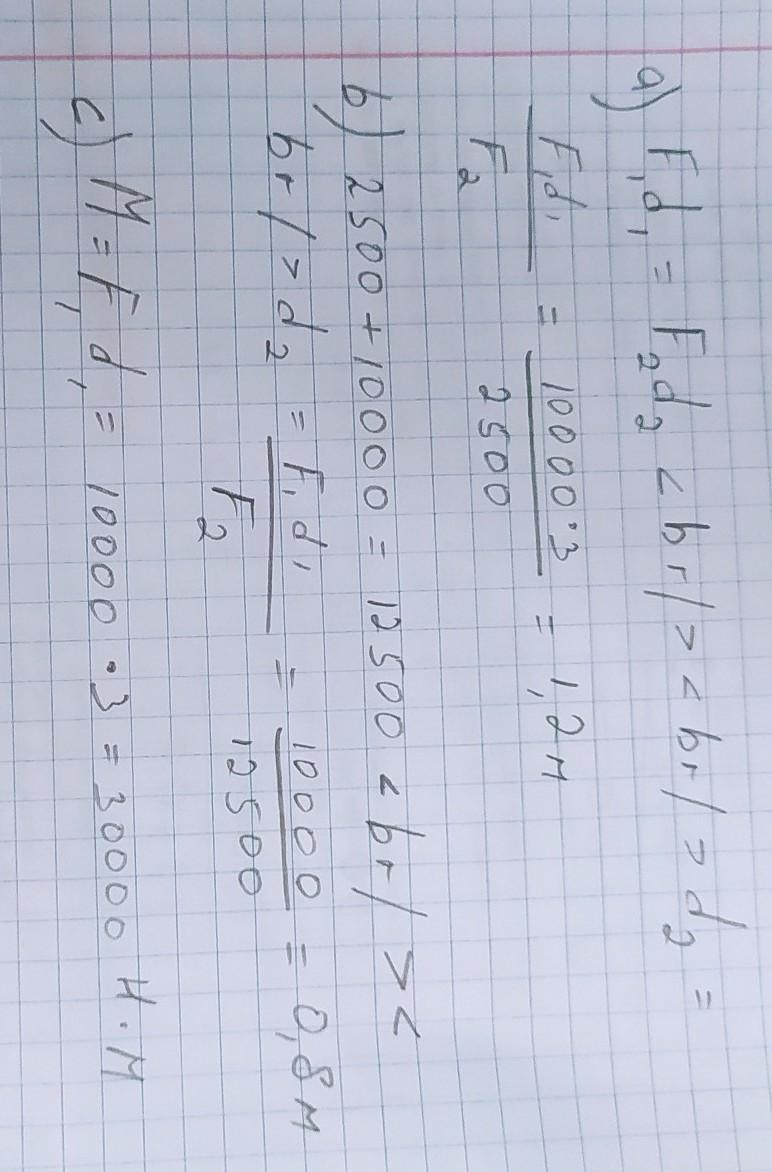 a) F₁d₁ = F₂d₂ <br/><br/>d₂ =
F₁d₁/F₂ = 10000·3/2500 = 1,2 м
b) 2500 + 10000 = 12500 <br/><
br/>d₂ = F₁d₁/F₂ = 10000/12500 = 0,8 м
c) M = F₁d₁ = 10000·3 = 30000 Н·м